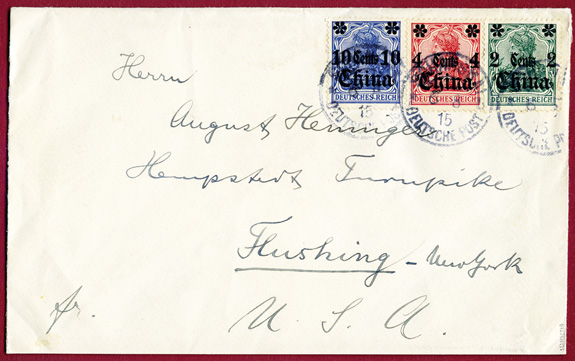 10 Cents 10
China
DEUTSCHES REICH
4 Cents 4
China
DEUTSCHES REICH
2 Cents 2
China
DEUTSCHES REICH
15
15
DEUTSCHE POST
15
DEUTSCHE
Herrn
August
Hempstedt Turnpike
Flushing - New York
fr.
U. S. A.